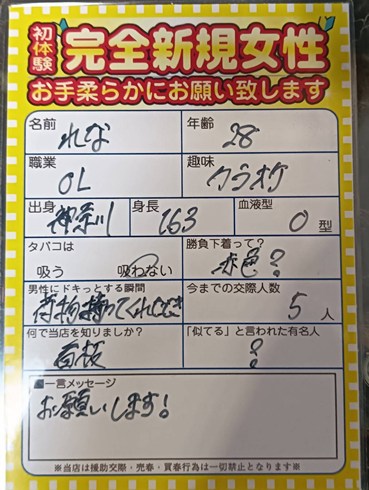 初体験
完全新規女性
お手柔らかにお願い致します
名前 れな 年齢 28
職業 OL 趣味 カラオケ
出身 神奈川 身長 163 血液型 O 型
タバコは 吸う 吸わない 勝負下着って? 赤色?
男性にドキっとする瞬間 荷物持ってくれたとき 今までの交際人数 5 人
何で当店を知りましたか? 看板 「似てる」と言われた有名人 ?
一言メッセージ
お願いします!
※当店は援助交際・売春・買春行為は一切禁止となります※